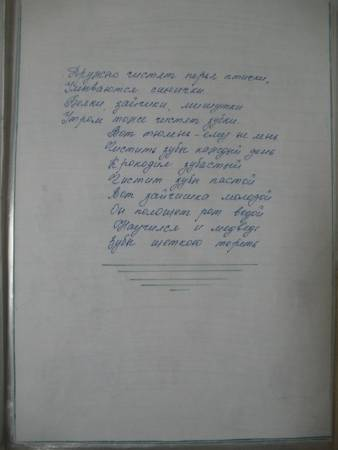 Дружно чистят перья птички,
Умываются синички.
Волки, зайчики, мишутки
Утром тоже чистят зубки.
Вот тюлень - ему не лень
Чистить зубы каждый день
Крокодил зубастый
Чистит зубы пастой
Вот зайчишка молодой
Он полощет рот водой
Научился и медведь
Зубы щеткою тереть